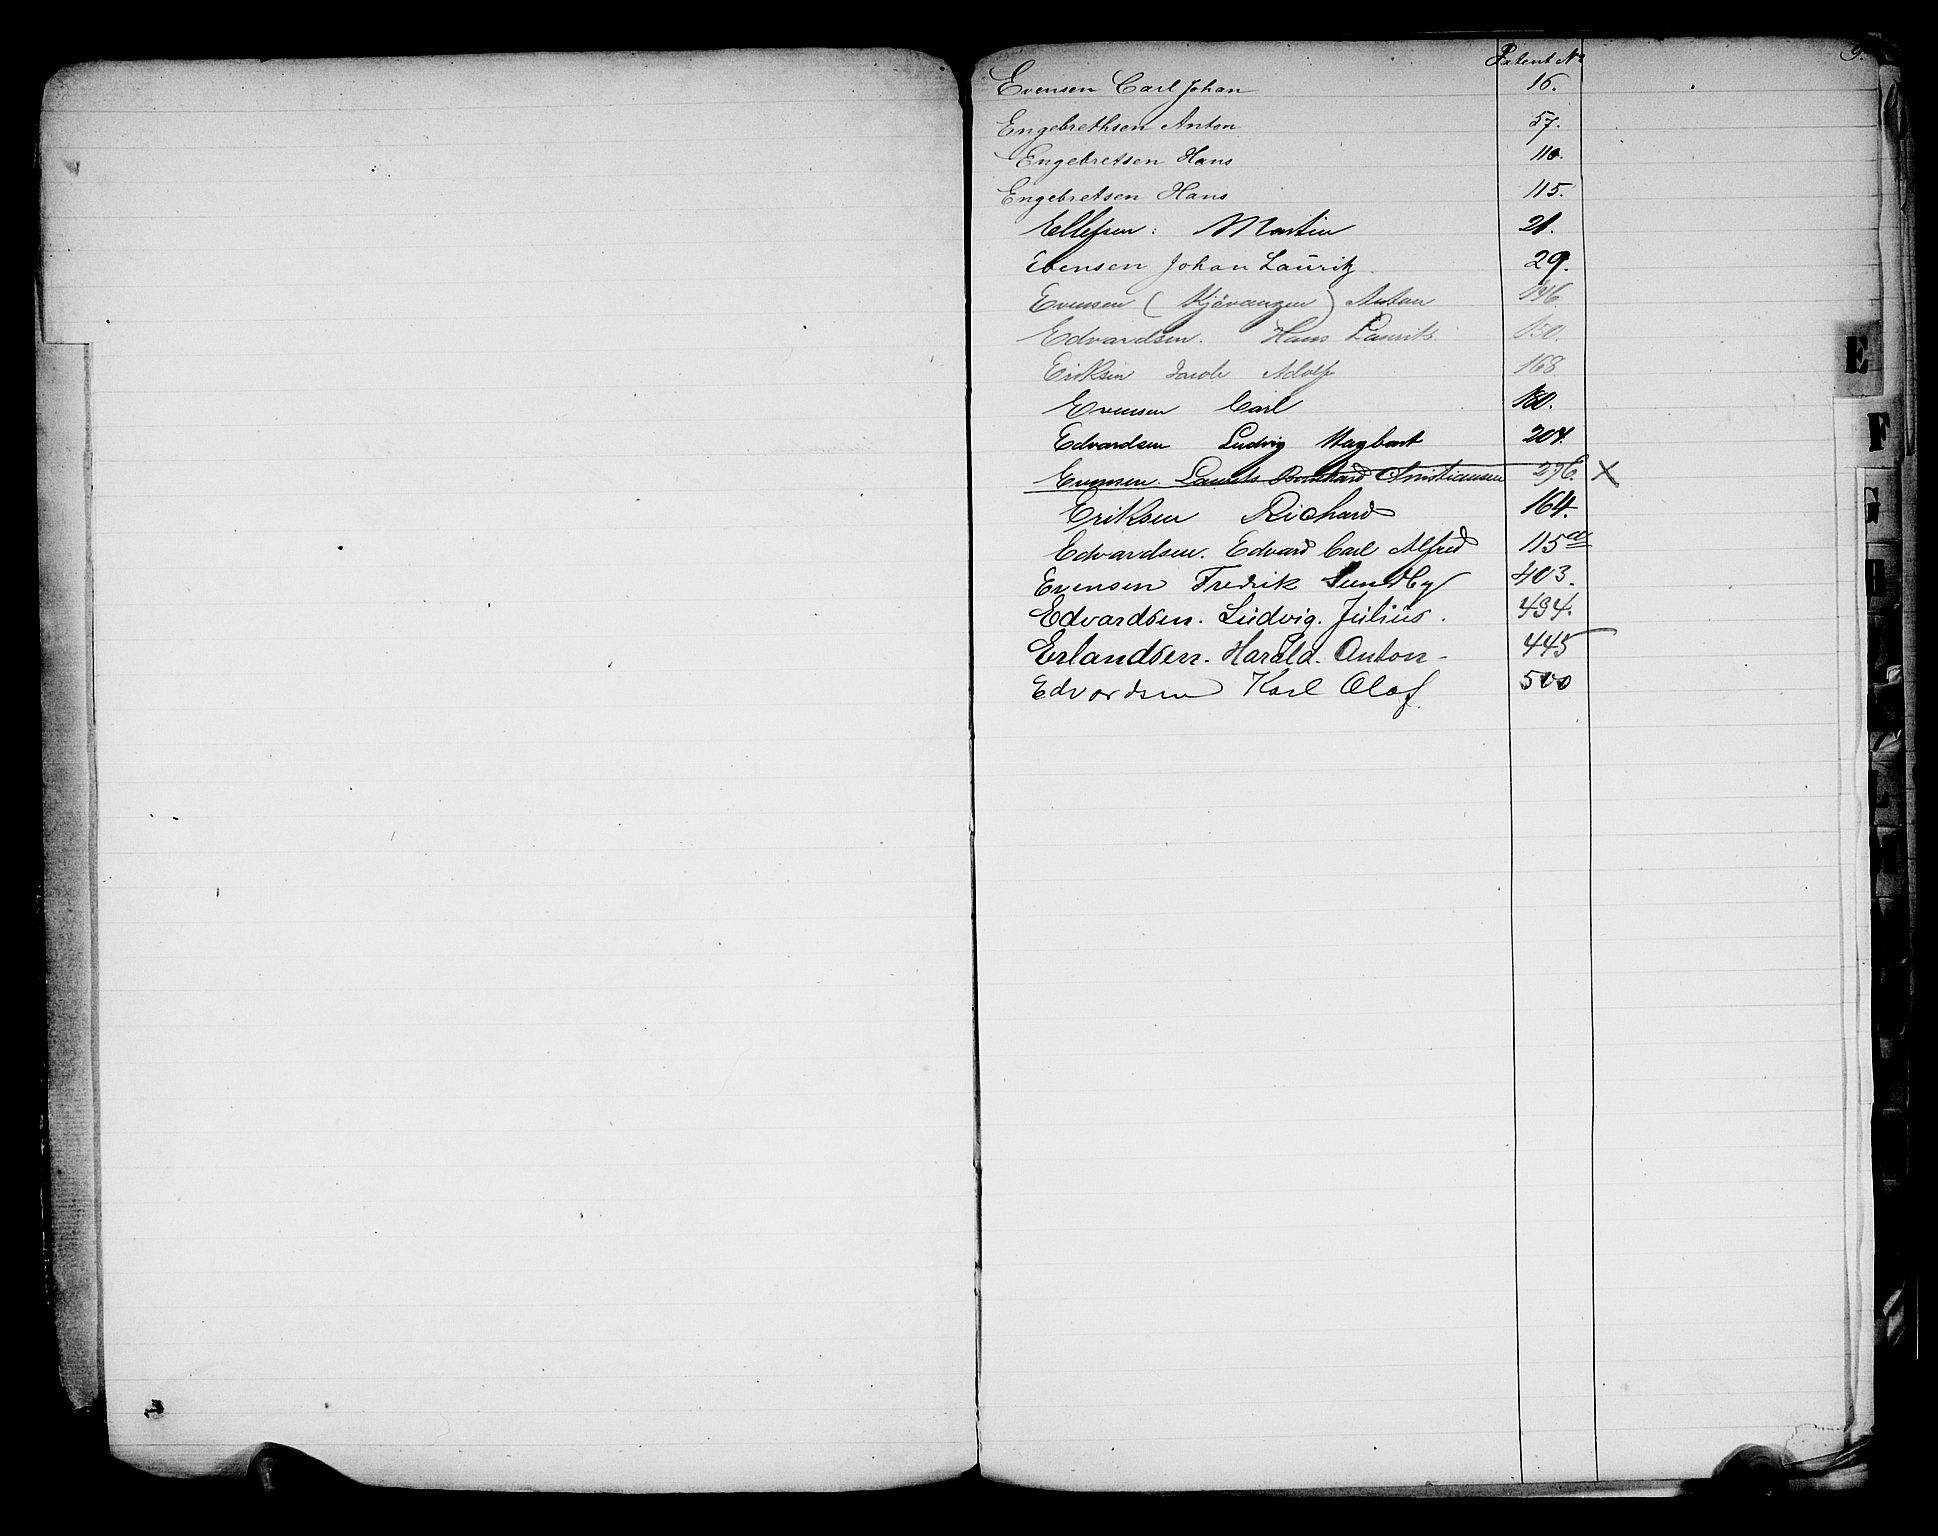 Patent No
9.
Evensen Carl Johan 16.
Engebrethsen Anton 57.
Engebretsen Hans 110.
Engebretsen Hans 115.
Ellefsen: Martin 21.
Evensen Johan Lauritz 29.
Evensen (Kjövangen) Anton 146.
Edvardsen. Hans Laurits 150.
Eriksen Jacob Adolf 168
Evensen Carl 180.
Edvardsen Ludvig Hagbart 204.
Evensen. Laurits Bernhard Christiansen 296. X
Eriksen Richard 164.
Edvardsen. Edvard Carl Alfred 115a
Evensen Fredrik Sundby 403.
Edvardsen. Ludvig. Julius. 434.
Erlandsen. Harald. Anton- 445
Edvardsen Karl Olaf. 500
E
F
G
H